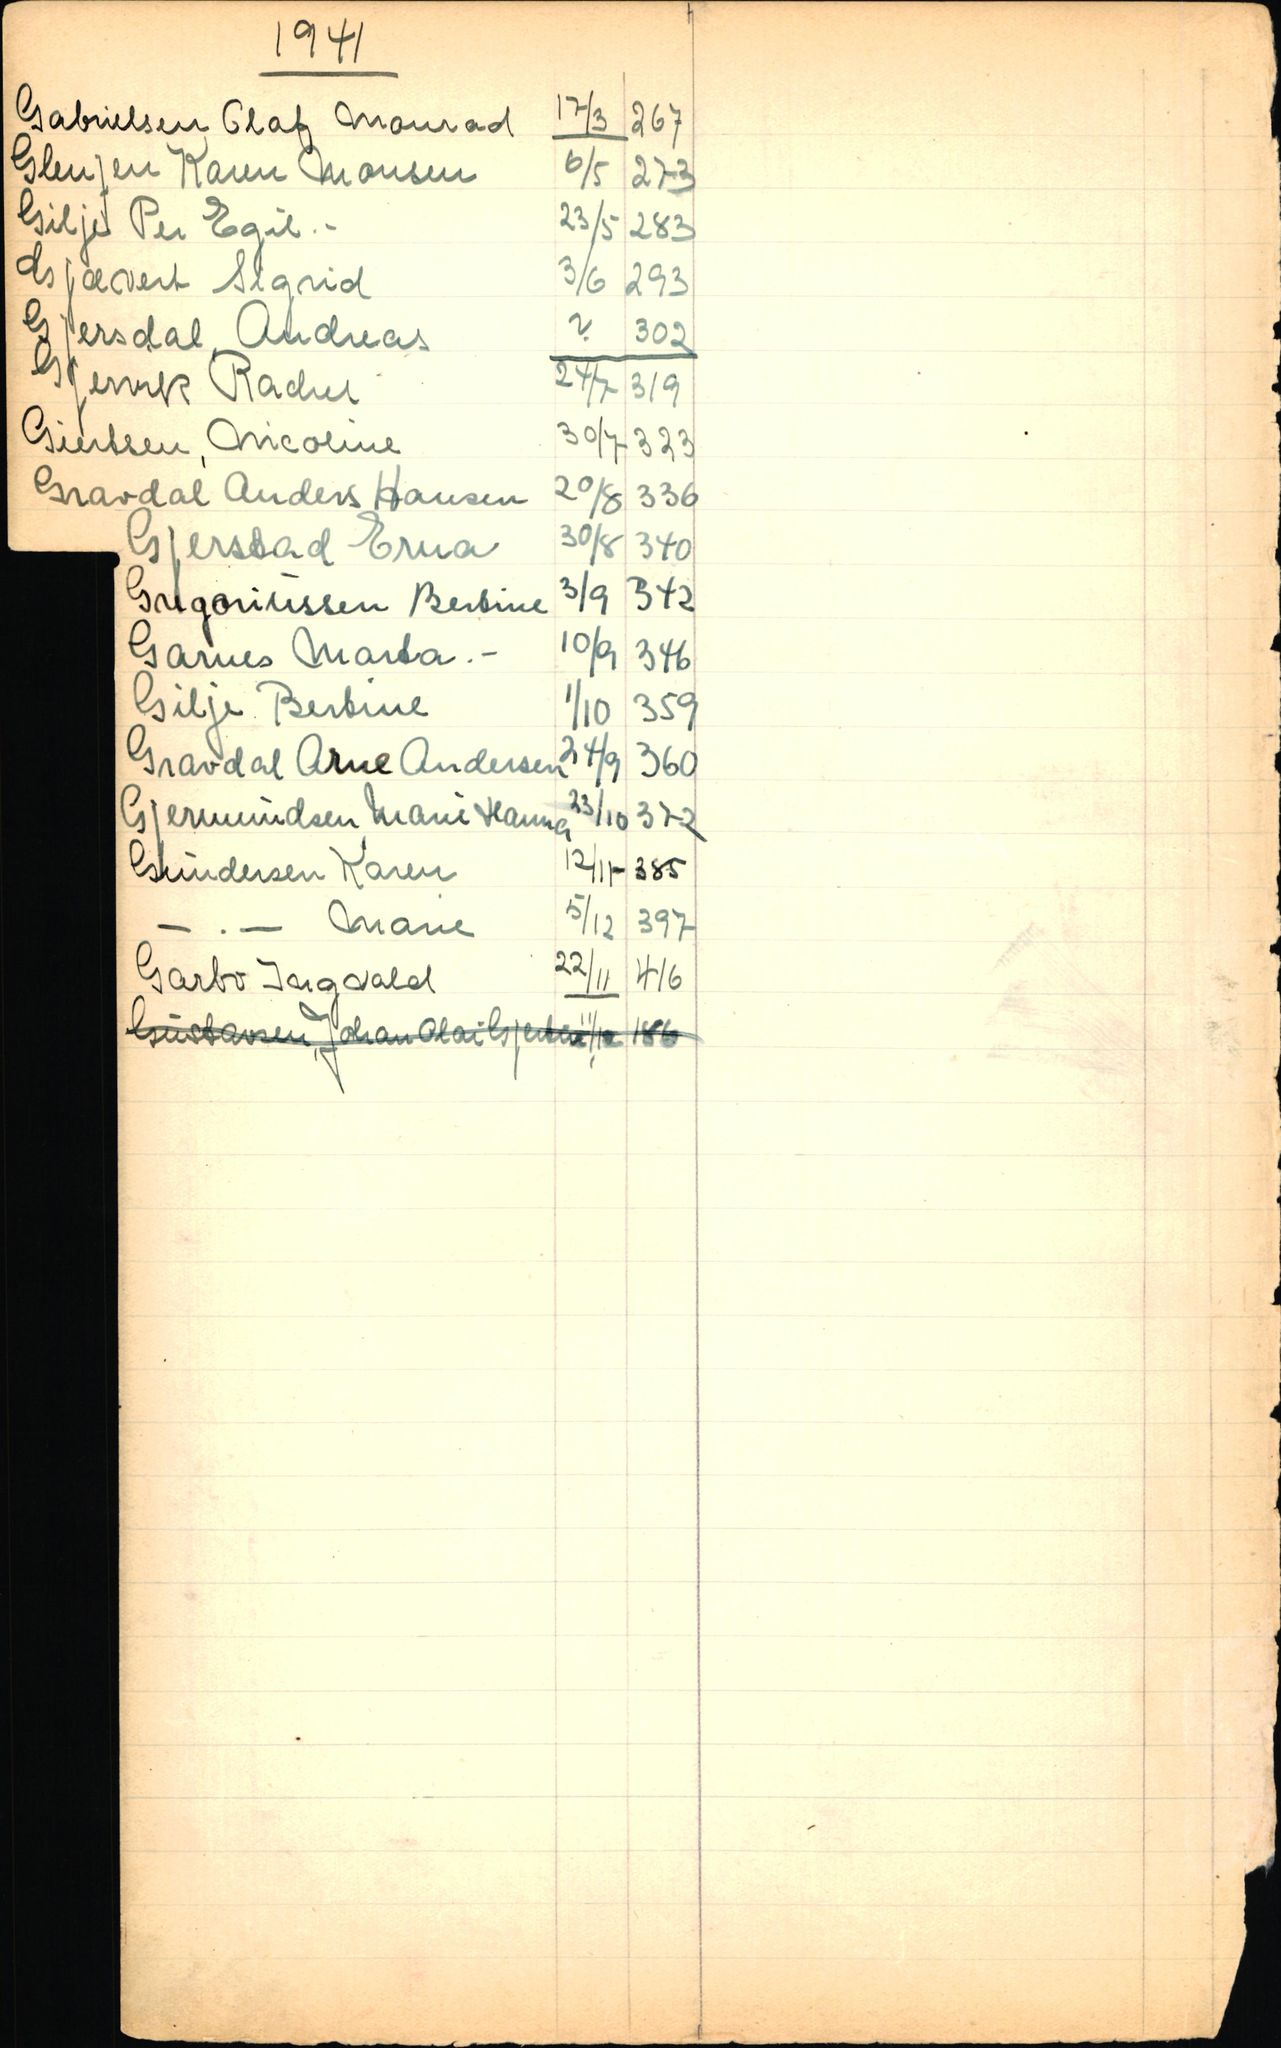 1941
Gabrielsen, Olaf Monrad 17/3 267
Glenjen Karen Monsen 6/5 273
Gilje Per Egil.- 23/5 283
Gjævert Sigrid 3/6 293
Gjersdal, Andreas ? 302
Gjervik Rachel 24/7 319
Giertsen, Nicoline 30/7 323
Gravdal Anders Hansen 20/8 336
Gjerstad Erna 30/8 340
Gregoriussen Bertine 3/9 342
Garnes Marta.- 10/9 346
Gilje Bertine 1/10 359
Gravdal Arne Andersen 24/9 360
Gjermundsen, Marie Hanna 23/10 372
Gundersen Karen 12/11- 385
— . — Marie 5/12 397
Garbo Ingvald 22/11 416
Gustavsen, Johan Olai 186